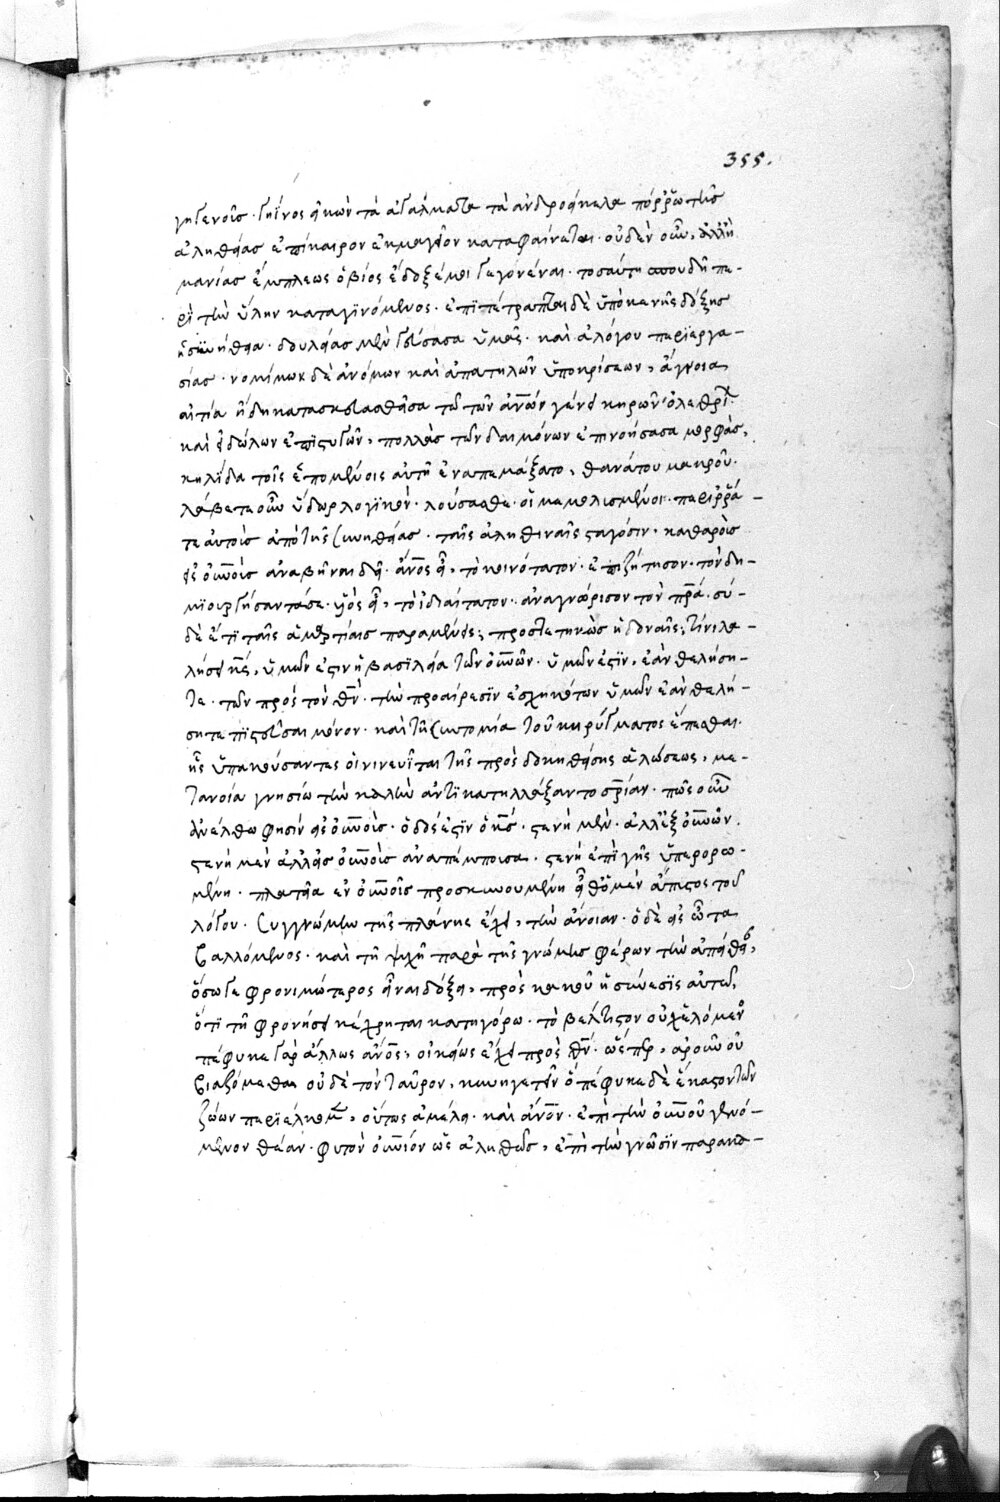 355.
γηγενοῦς· γήϊνος εἰκὼν τὰ ἀγάλματα τὰ ἀνδρείκελα πόρρω τῆς
ἀληθείας ἐπίκαιρον ἐκμαγεῖον καταφαίνεται· οὐδὲν οὖν, ἀλλ' ἢ
μανίας ἔμπλεως ὁ βίος ἔδοξέ μοι γεγονέναι· τοσαύτη σπουδῆ πε-
ρὶ τὴν ὕλην καταγινόμενος· ἐπιτέτραπται δὲ ὑπὸ κενῆς δόξης
ἡ συνήθεια· δουλείας μὲν γεύσασα ὑμᾶς· καὶ ἀλόγου περιεργα-
σίας· νομίμων δὲ ἀνόμων καὶ ἀπατηλῶν ὑποκρίσεων, ἄγνοια
αἰτία ἤδη κατασκευασθεῖσα τῶ τῶν ἀνων γένει κηρῶν ὀλεθρί·
καὶ εἰδώλων ἐπιστυγῶν, πολλὰς τῶν δαιμόνων ἐπινοήσασα μορφὰς,
κηλίδα τοῖς ἑπομένοις αὐτῆ ἐναπεμάξατο, θανάτου μακροῦ·
λάβετε οὖν ὕδωρ λογικὸν· λούσασθε· οἱ μεμολυσμένοι· περιρρά-
τε αὐτοὺς ἀπὸ τῆς συνηθείας· ταῖς ἀληθιναῖς σταγόσιν· καθαροὺς
εἰς οὐνοὺς ἀναβῆναι δεῖ· ἄνος εἶ, τὸ κοινότατον· ἐπιζήτησον· τὸν δη-
μιουργήσαντά σε· υἱὸς εἶ, τὸ ἰδιαίτατον· ἀναγνώρισον τὸν πρα· σύ-
δὲ ἔτι ταῖς ἁμαρτίαις παραμένεις; προστετηκὼς ἡδοναῖς; τίνι λα-
λήσει κς, ὑμῶν ἐστιν ἡ βασιλεία τῶν οὐνων· ὑμῶν ἐστὶν, ἐὰν θελήση-
τε· τῶν πρὸς τὸν θν· τὴν προαίρεσιν ἐσχηκότων ὑμῶν ἐὰν θελή-
σητε πιστεῦσαι μόνον· καὶ τῆ συντομία τοῦ κηρύγματος ἕπεσθαι·
ἧς ὑπακούσαντες οἱ νινευῖται τῆς προσδοκηθείσης ἁλώσεως, με-
τανοία γνησίω τὴν καλὴν ἀντικατηλλάξαντο σρίαν· πῶς οὖν
ἀνέλθω φησὶν εἰς οὐνοὺς· ὁδός ἐστιν ὁ κς· στενὴ μὲν· ἀλλ' ἐξ οὐνῶν·
στενὴ μὲν ἀλλ' εἰς οὐνοὺς ἀναπέμπουσα· στενὴ ἐπὶ γῆς ὑπερορω-
μένη· πλατεῖα ἐν οὐνοῖς προσκυνουμένη εἶθ' ὁ μὲν ἄπυστος τοῦ
λόγου· συγγνώμην τῆς πλάνης ἔχει, τὴν ἄνοιαν· ὁ δὲ εἰς ὦτα
βαλλόμενος· καὶ τῆ ψυχῆ παρὰ τῆς γνώμης φέρων τὴν ἀπείθ,
ὅσω γε φρονιμώτερος εἶναι δόξει, πρὸς κακοῦ ἡ σύνεσις αὐτῶ,
ὅτι τῆ φρονήσει κέχρηται κατηγόρω· τὸ βέλτιστον οὐχ ἑλόμεν
πέφυκε γὰρ ἄλλως ἄνος, οἰκείως ἔχει πρὸς θν· ὥσπερ, ἀροῦν οὐ
βιαζόμεθα οὐδὲ τὸν ταῦρον, κυνηγετεῖν ὃ πέφυκε δὲ ἕκαστον τῶν
ζώων περιέλκομ, οὕτως ἀμέλει· καὶ ἄνον· ἐπὶ τὴν οὐνοῦ γενό-
μενον θέαν· φυτὸν οὐνιον ὡς ἀληθῶς, ἐπὶ τὴν γνῶσιν παρακα-